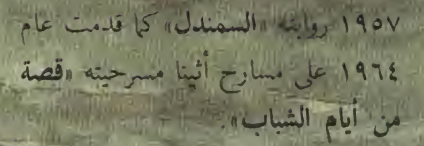 ١٩٥٧ روايته «السمندل» كما قدمت عام
١٩٦٤ على مسارح أثينا مسرحيته «قصة
من أيام الشباب».